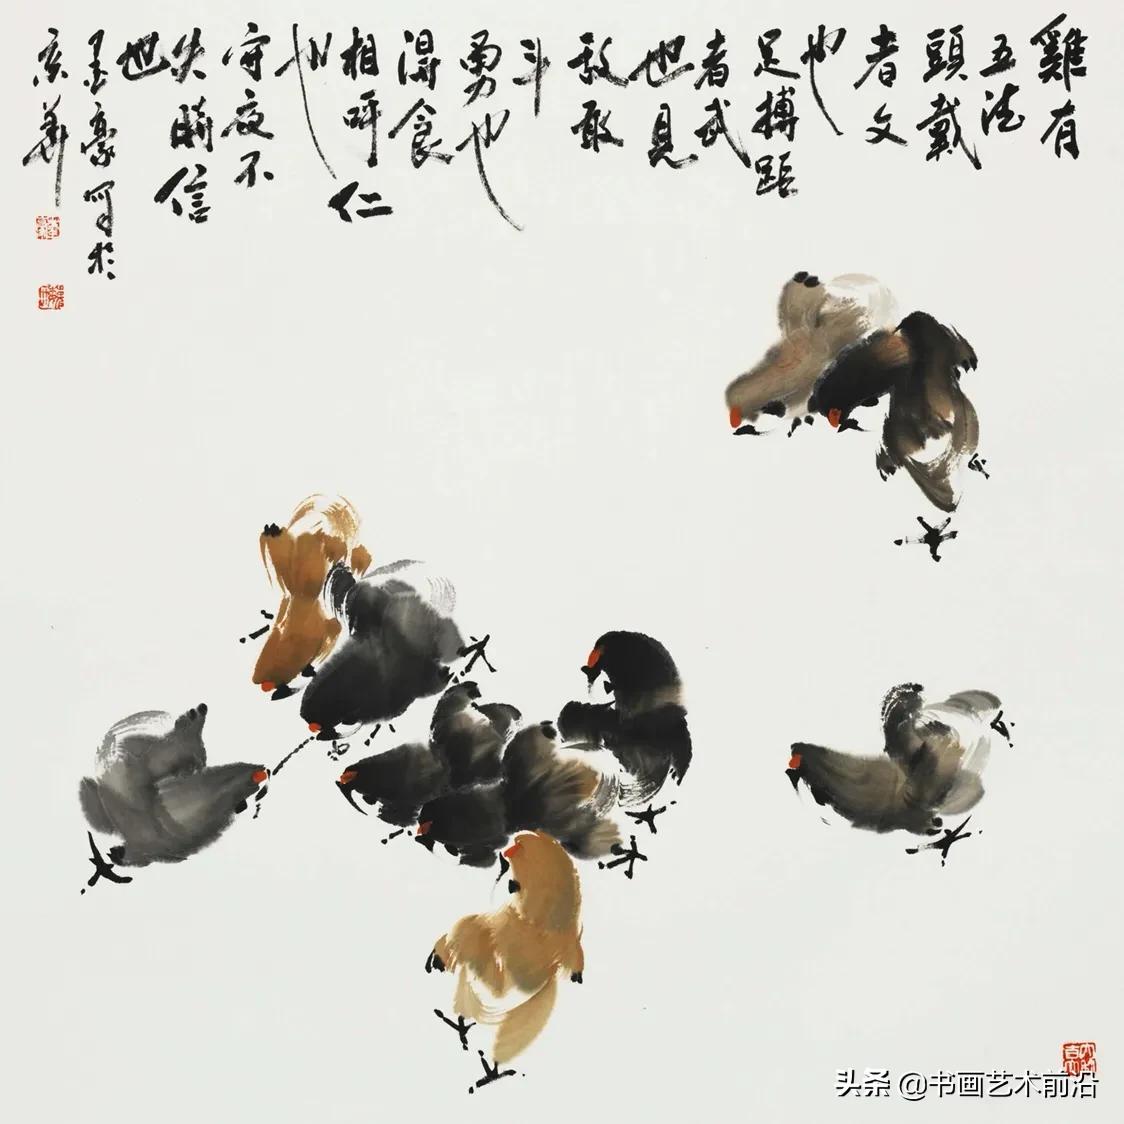 雞有
五德
頭戴
者文
也
足搏距
者武
也見
敌敢
斗
勇也
得食
相呼仁
也
守夜不
失時信
也
墨豪写於
京華
头条 @书画艺术前沿